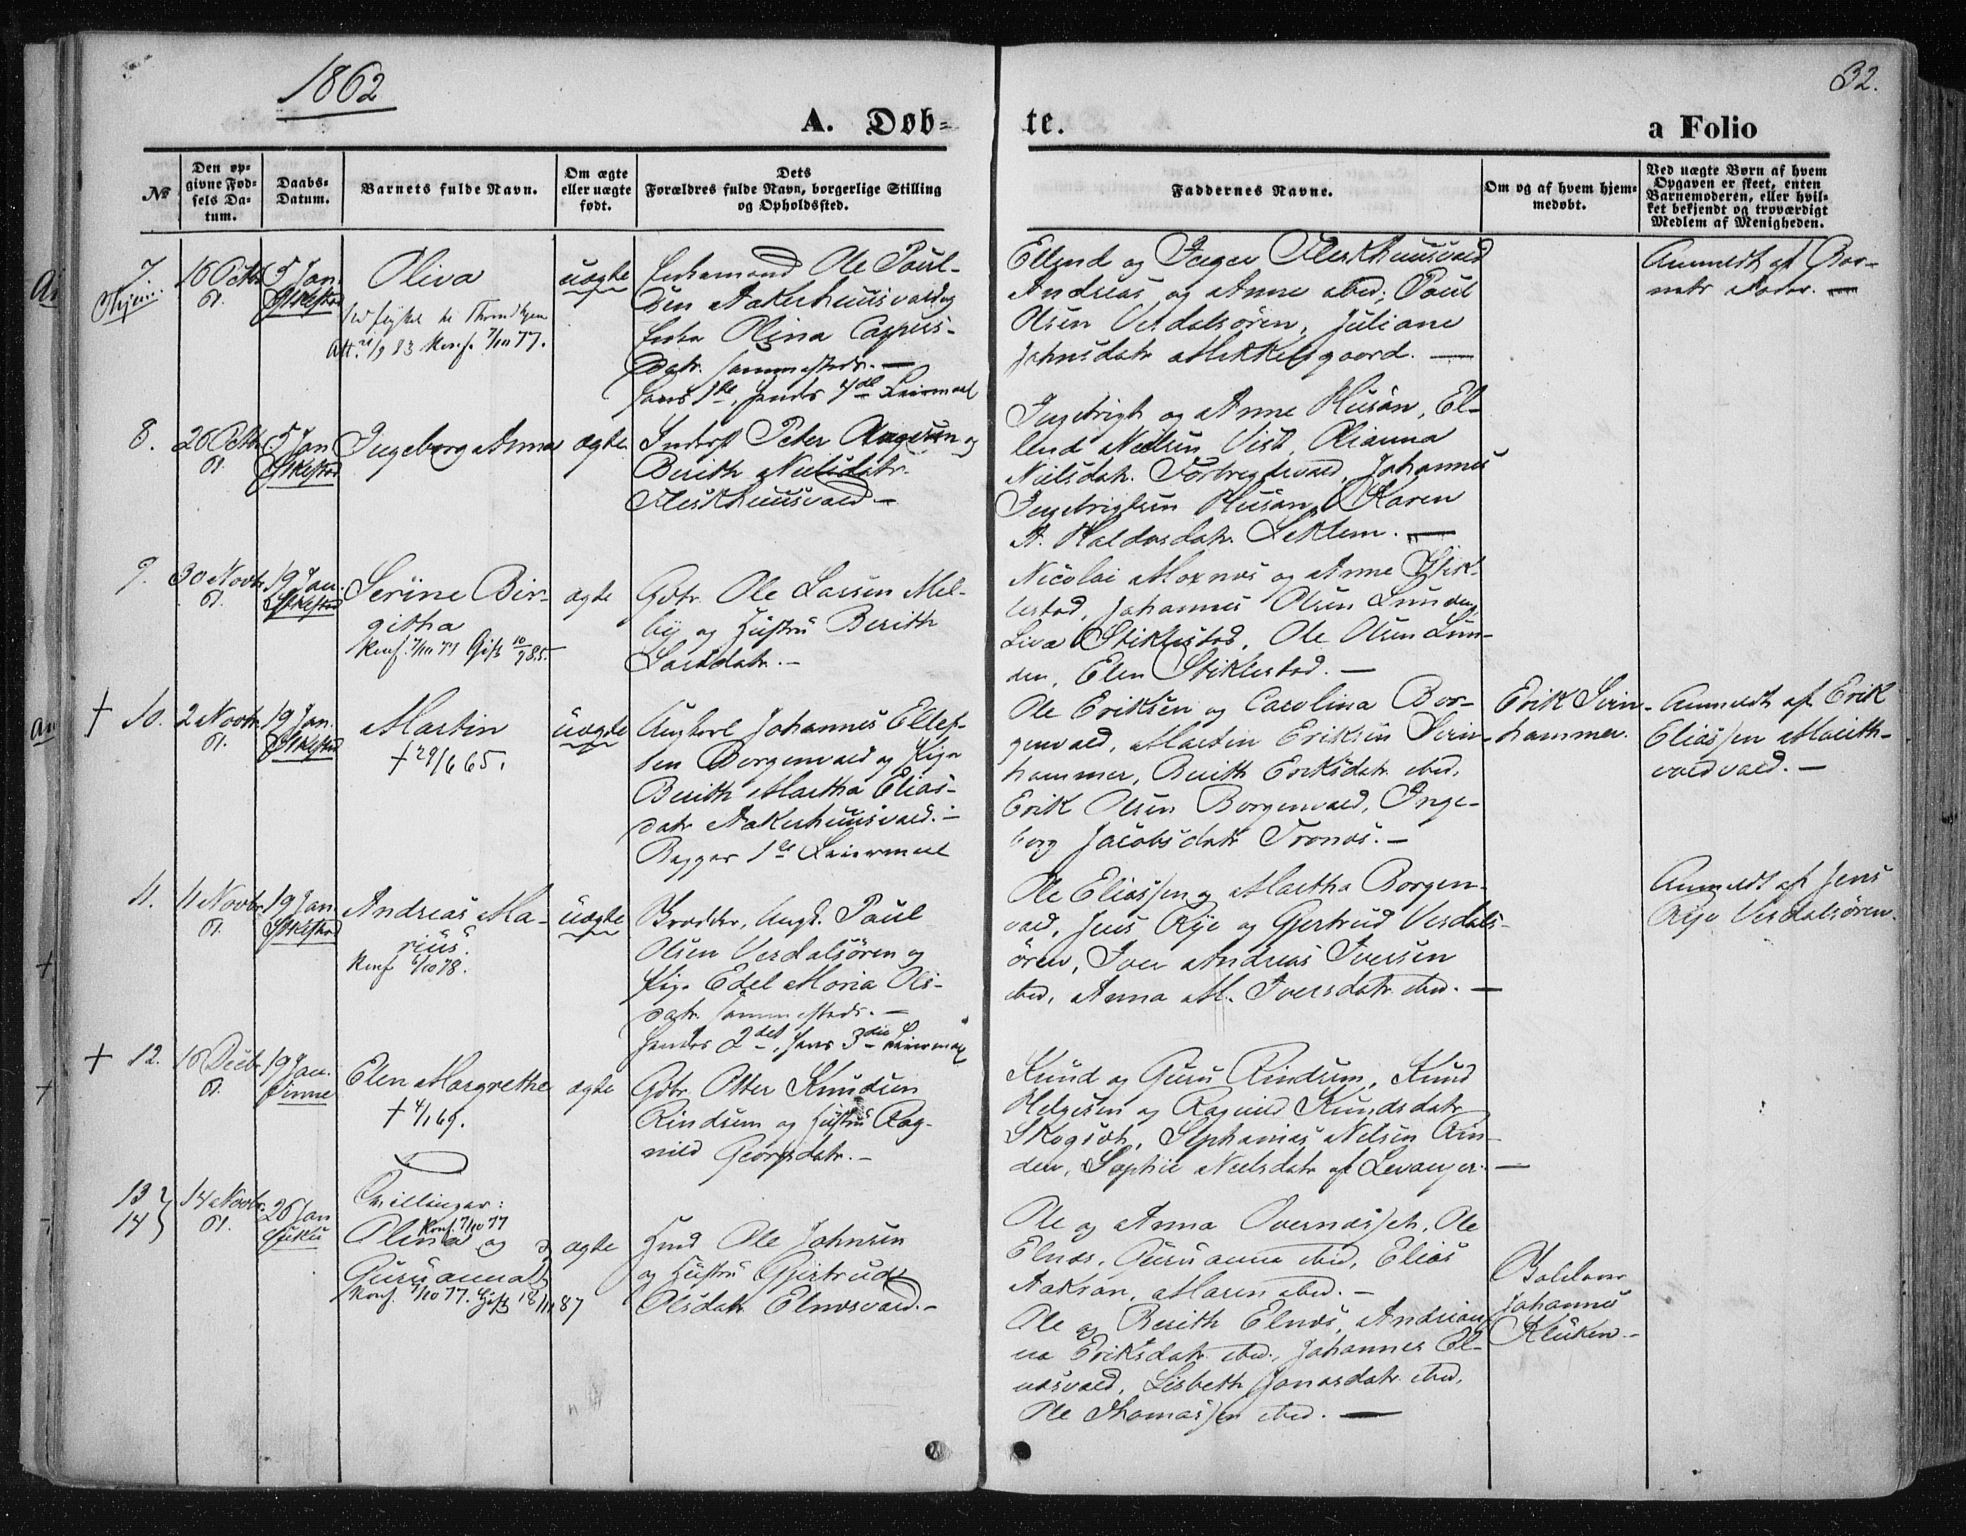 1862
32.
A. Døb=
te.
a Folio
№
Den op-
givne Fød-
sels Da-
tum.
Daabs-
Datum.
Barnets fulde Navn.
Om ægte
eller uægte
født.
Dets
Forældres fulde Navn, borgerlige Stilling
og Opholdssted.
Faddernes Navne.
Om og af hvem hjem-
medøbt.
Ved uægte Børn af hvem
Opgaven er skeet, enten
Barnemoderen, eller hvil-
ket bekjendt og troværdigt
Medlem af Menigheden.
7
16 Octbr
5 Jan.
Stiklestad
Oliva
Konf. 7/10 77.
uægte
Enkemand Ole Paul-
sen Aakerhuusvald og
Enke Olina Caspers-
datr. sammesteds. —
Hans 1ste, hendes 4de Leiermaal
Ellend og Inger Fleskhuusvald
Andreas og Anne ibid; Paul
Olsen Verdalsøren, Juliane
Johnsdatr Mikkelsgaard. —
Anmeldt af Bar-
nets Fader. —
8.
26 Octbr
5 Jan
Stiklestad
Ingeborg Anna
ægte
Inderst Peter Aagesen og
Berith Nielsdatr.
Fleskhuusvald —
Ingebrigt og Anne Husan, El-
lend Nielsen Vist, Olianna
Nielsdatr. Forbregdsvald, Johannes
Ingebrigtsen Husan, Karen
A. Haldosdatr. Leklem. —
9.
30 Novbr.
19 Jan.
Stiklestad
Serine Bir-
githa
Konf. 7/10 77 Gift 10/9 85.
ægte
Gdbr. Ole Larsen Mel-
by og Hustru Berith
Larsdatr. —
Nicolai Moxnes og Anne Stik-
lestad, Johannes Olsen Lunden,
Liva Stiklestad, Ole Olsen Lun-
den, Elen Stiklestad. —
† 10.
2 Novbr.
19 Jan.
Stiklestad
Martin
† 29/6 65.
uægte
Ungkarl Johannes Ellef-
sen Borgenvald og Pige
Berith Martha Elias-
datr Aakerhuusvald. —
Begges 1ste Leiermaal
Ole Eriksen og Carolina Bor-
genvald, Martin Eriksen Svin-
hammer, Berith Eriksdatr ibid,
Erik Olsen Borgenvald, Inge-
borg Jacobsdatr Tronæs. —
Erik Svin-
hammer.
Anmeldt af Erik
Eliassen Marith-
voldvald. —
11.
11 Novbr
19 Jan
Stiklestad
Andreas Ma-
rius.
Konf 6/10 78.
uægte
Brødder, Ungk. Paul
Olsen Verdalsøren og
Pige Edel Maria Ols-
datr. sammesteds. —
Hendes 2det, hans 3die Leiermaal
Ole Eliassen og Martha Borgen-
vald, Jens Rye og Gjertrud Verdals-
øren, Iver Andreas Iversen
ibid, Anna M. Iversdatr ibid. —
Anmeldt af Jens
Rye Verdalsøren.
† 12.
16 Decbr.
19 Jan.
Vinne
Elen Margrethe
† 4/1 69.
ægte
Gdbr. Otter Knudsen
Rindsem og Hustru Rag-
nild Georgsdatr. —
Knud og Guru Rindsem, Knud
Helgesen og Ragnild Knudsdatr
Skogset, Sephanias Nelsen Rin-
den, Sophie Nielsdatr af Levanger. —
13
14
14 Novbr.
26 Jan
Tvillinger:
Konf. 7/10 77
Olina og
Guruanna
Konf. 7/10 77. Gift 18/11 87
ægte
Hmd Ole Johnsen
og Hustru Gjertrud
Olsdatr. Elnesvald. —
Ole og Anna Overnessen, Ole
Elnes, Guruanna ibid, Elias
Aaksan, Maren ibid. —
Ole og Berith Elnes, Andrian-
na Eriksdatr ibid., Johannes El-
nesvald, Lisbeth Jonasdatr ibid,
Ole Thomassen ibid. —
Johannes
Kluken. —